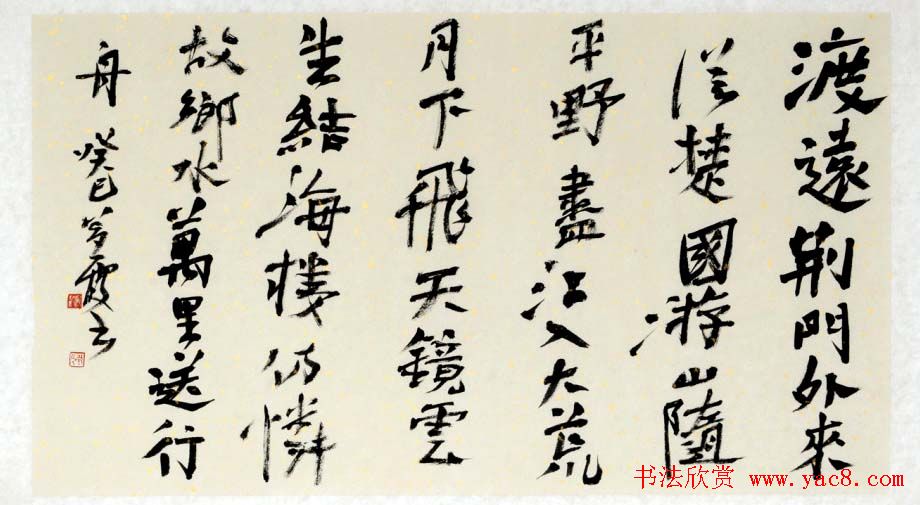 渡遠荆門外來
從楚國游山隨
平野盡江入大荒
月下飛天鏡雲
生結海樓仍憐
故鄉水萬里送行
舟 癸巳 霞书
书法欣赏 www.yac8.com